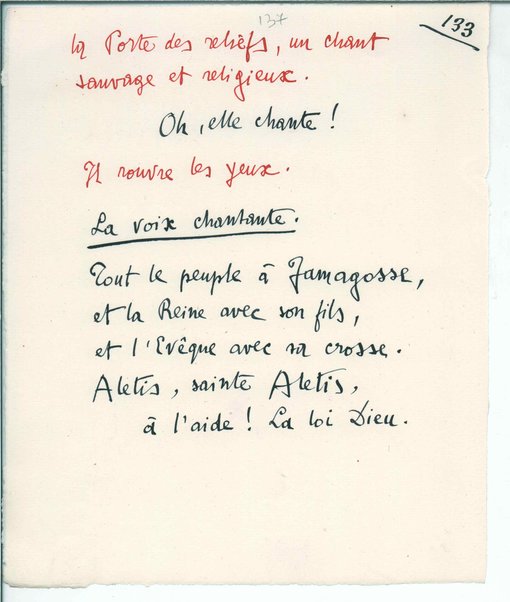 137
133
la Porte des reliefs, un chant
sauvage et religieux.
Oh, elle chante !
Il rouvre les yeux.
La voix chantante.
Tout le peuple à Famagosse,
et la Reine avec son fils,
et l'Evêque avec sa crosse.
Aletis, sainte Aletis,
à l'aide ! La loi Dieu.